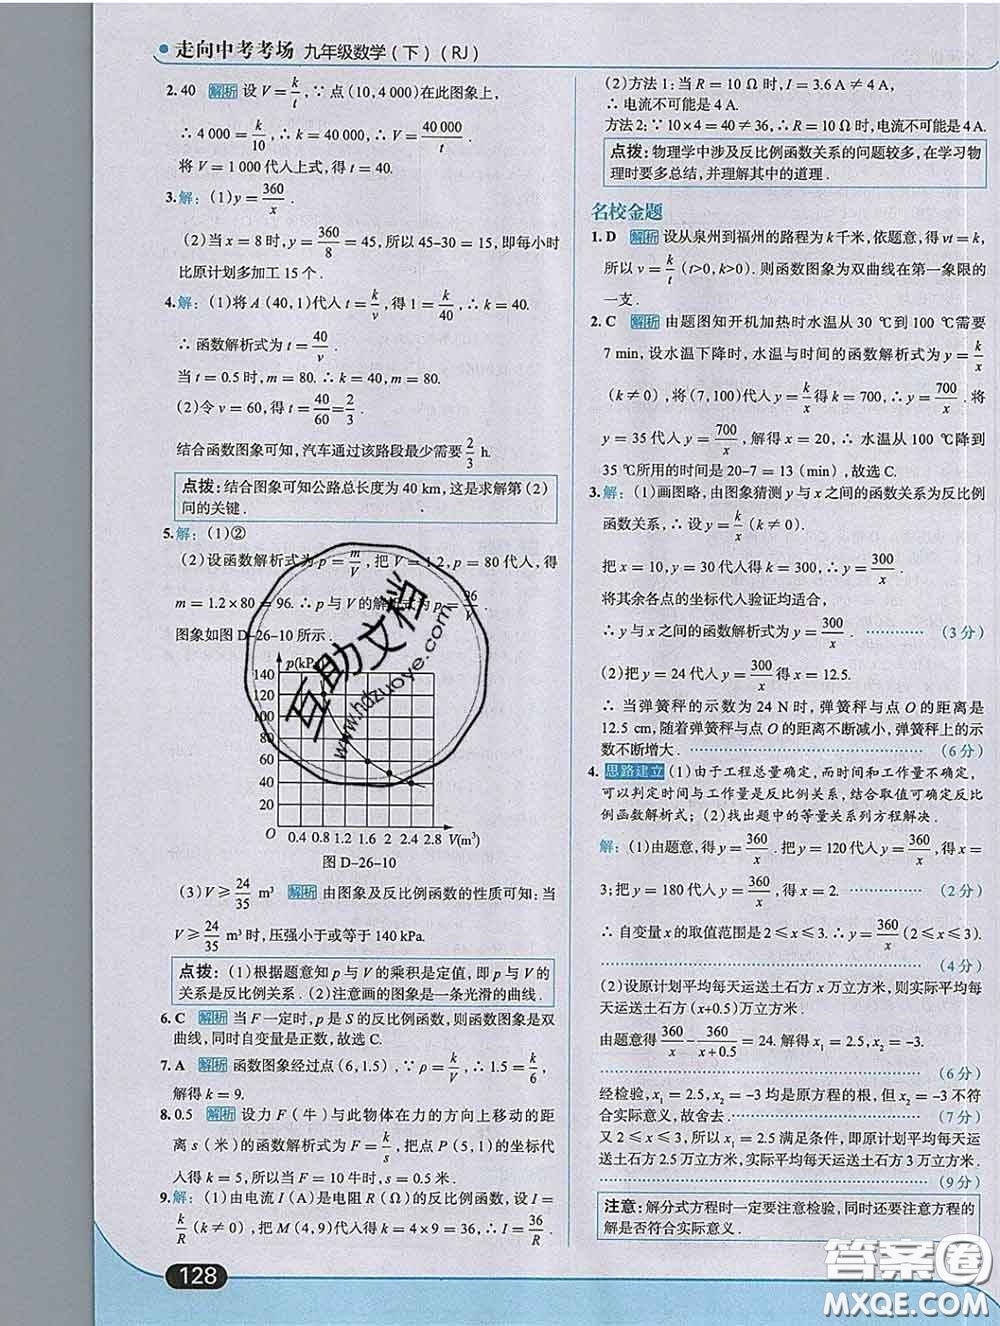 走向中考考场 九年级数学(下)(RJ)
2. 40 解析 设 V = k/t, ∵ 点(10,4 000)在此图象上,
∴ 4 000 = k/10, ∴ k = 40 000, ∴ V = 40 000/t.
将 V = 1 000 代入上式,得 t = 40.
3. 解: (1) y = 360/x.
(2)当 x = 8 时, y = 360/8 = 45, 所以 45-30 = 15, 即每小时
比原计划多加工 15 个.
4. 解: (1)将 A(40,1)代入 t = k/v, 得 1 = k/40, ∴ k = 40.
∴ 函数解析式为 t = 40/v.
当 t = 0.5 时, m = 80. ∴ k = 40, m = 80.
(2)令 v = 60, 得 t = 40/60 = 2/3.
结合函数图象可知,汽车通过该路段最少需要 2/3 h.
点拨: 结合图象可知公路总长度为 40 km, 这是求解第(2)
问的关键.
5. 解: (1)②
(2)设函数解析式为 p = m/V, 把 V = 1.2, p = 80 代入, 得
m = 1.2×80 = 96. ∴ p 与 V 的解析式为 p =
图象如图 D-26-10 所示.
p(kPa
140
120
100
80
60
40
20
O 0.4 0.8 1.2 1.6 2 2.4 2.8 V(m³)
图 D-26-10
(3) V ≥ 24/35 m³ 解析 由图象及反比例函数的性质可知: 当
V ≥ 24/35 m³ 时, 压强小于或等于 140 kPa.
点拨: (1)根据题意知 p 与 V 的乘积是定值, 即 p 与 V 的
关系是反比例关系. (2)注意画的图象是一条光滑的曲线.
6. C 解析 当 F 一定时, p 是 S 的反比例函数, 则函数图象是双
曲线, 同时自变量是正数, 故选 C.
7. A 解析 函数图象经过点(6,1.5), ∵ ρ = k/V, ∴ 1.5 = k/6,
解得 k = 9.
8. 0.5 解析 设力 F(牛)与此物体在力的方向上移动的距
离 s(米)的函数解析式为 F = k/s, 把点 P(5,1)的坐标代
入得 k = 5, 所以当 F = 10 牛时, s = 0.5 米.
9. 解: (1)由电流 I(A)是电阻 R(Ω)的反比例函数, 设 I =
k/R (k≠0), 把 M(4,9)代入得 k = 4×9 = 36, ∴ I = 36/R.
128
(2)方法 1: 当 R = 10 Ω 时, I = 3.6 A ≠ 4 A,
∴ 电流不可能是 4 A.
方法 2: ∵ 10×4 = 40 ≠ 36, ∴ R = 10 Ω 时, 电流不可能是 4 A.
点拨: 物理学中涉及反比例函数关系的问题较多, 在学习物
理时要多总结, 并理解其中的道理.
名校金题
1. D 解析 设从泉州到福州的路程为 k 千米, 依题意, 得 vt = k,
所以 v = k/t (t>0, k>0). 则函数图象为双曲线在第一象限的
一支.
2. C 解析 由题图知开机加热时水温从 30 ℃到 100 ℃需要
7 min, 设水温下降时, 水温与时间的函数解析式为 y = k/x
(k≠0), 将(7,100)代入 y = k/x 得 k = 700, ∴ y = 700/x. 将
y = 35 代入 y = 700/x, 解得 x = 20, ∴ 水温从 100 ℃降到
35 ℃所用的时间是 20-7 = 13 (min), 故选 C.
3. 解: (1)画图略, 由图象猜测 y 与 x 之间的函数关系为反比例
函数关系, ∴ 设 y = k/x (k≠0),
把 x = 10, y = 30 代入得 k = 300, ∴ y = 300/x.
将其余各点的坐标代入验证均适合,
∴ y 与 x 之间的函数解析式为 y = 300/x. ………… (3 分)
(2)把 y = 24 代入 y = 300/x 得 x = 12.5.
∴ 当弹簧秤的示数为 24 N 时, 弹簧秤与点 O 的距离是
12.5 cm, 随着弹簧秤与点 O 的距离不断减小, 弹簧秤上的示
数不断增大. ………… (6 分)
4. 思路建立 (1)由于工程总量确定, 而时间和工作量不确定,
可以判定时间与工作量是反比例关系, 结合取值可确定反比
例函数解析式; (2)找出题中的等量关系列方程解决.
解: (1)由题意, 得 y = 360/x. 把 y = 120 代入 y = 360/x, 得 x =
3; 把 y = 180 代入 y = 360/x, 得 x = 2. ………… (2 分)
∴ 自变量 x 的取值范围是 2≤x≤3. ∴ y = 360/x (2≤x≤3).
………… (4 分)
(2)设原计划平均每天运送土石方 x 万立方米, 则实际平均每
天运送土石方 (x+0.5)万立方米.
由题意得 360/x - 360/(x+0.5) = 24. 解得 x₁ = 2.5, x₂ = -3.
………… (6 分)
经检验, x₁ = 2.5, x₂ = -3 均是原方程的根, 但 x₂ = -3 不符
合实际意义, 故舍去. ………… (7 分)
又 2≤x≤3, 所以 x₁ = 2.5 满足条件, 即原计划平均每天运
送土石方 2.5 万立方米, 实际平均每天运送土石方 3 万立方米.
………… (9 分)
注意: 解分式方程时一定要注意检验, 同时还要注意方程的
解是否符合实际意义.
互助文档
www.hdzuoye.com
答案圈
MXQE.COM